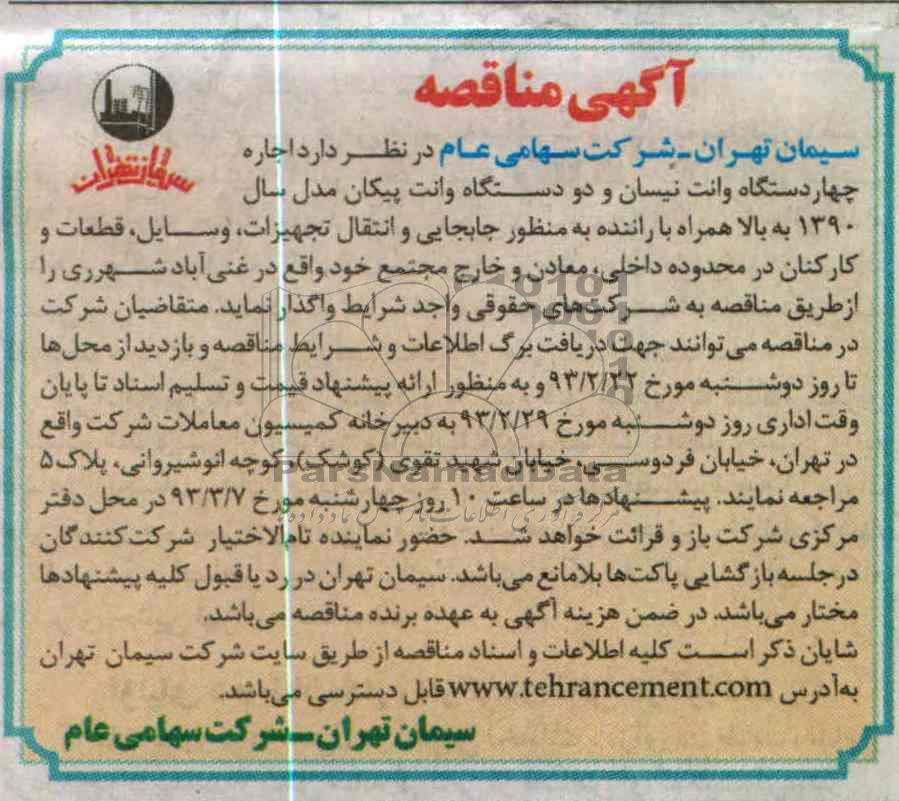 آگهی مناقصه
سیمان تهران
سیمان تهران ـ شرکت سهامی عام در نظر دارد اجاره
چهار دستگاه وانت نیسان و دو دستگاه وانت پیکان مدل سال
۱۳۹۰ به بالا همراه با راننده به منظور جابجایی و انتقال تجهیزات، وسایل، قطعات و
کارکنان در محدوده داخلی، معادن و خارج مجتمع خود واقع در غنی‌آباد شهرری را
ازطریق مناقصه به شرکت‌های حقوقی واجد شرایط واگذار نماید. متقاضیان شرکت
در مناقصه می‌توانند جهت دریافت برگ اطلاعات و شرایط مناقصه و بازدید از محل‌ها
تا روز دوشنبه مورخ ۹۳/۲/۲۲ و به منظور ارائه پیشنهاد قیمت و تسلیم اسناد تا پایان
وقت اداری روز دوشنبه مورخ ۹۳/۲/۲۹ به دبیرخانه کمیسیون معاملات شرکت واقع
در تهران، خیابان فردوسی، خیابان شهید تقوی (کوشک)، کوچه انوشیروانی، پلاک ۵
مراجعه نمایند. پیشنهادها در ساعت ۱۰ روز چهارشنبه مورخ ۹۳/۳/۷ در محل دفتر
مرکزی شرکت باز و قرائت خواهد شد. حضور نماینده تام‌الاختیار شرکت‌کنندگان
در جلسه بازگشایی پاکت‌ها بلامانع می‌باشد. سیمان تهران در رد یا قبول کلیه پیشنهادها
مختار می‌باشد. در ضمن هزینه آگهی به عهده برنده مناقصه می‌باشد.
شایان ذکر است کلیه اطلاعات و اسناد مناقصه از طریق سایت شرکت سیمان تهران
به‌آدرس www.tehrancement.com قابل دسترسی می‌باشد.
سیمان تهران ـ شرکت سهامی عام
ParsNamadData